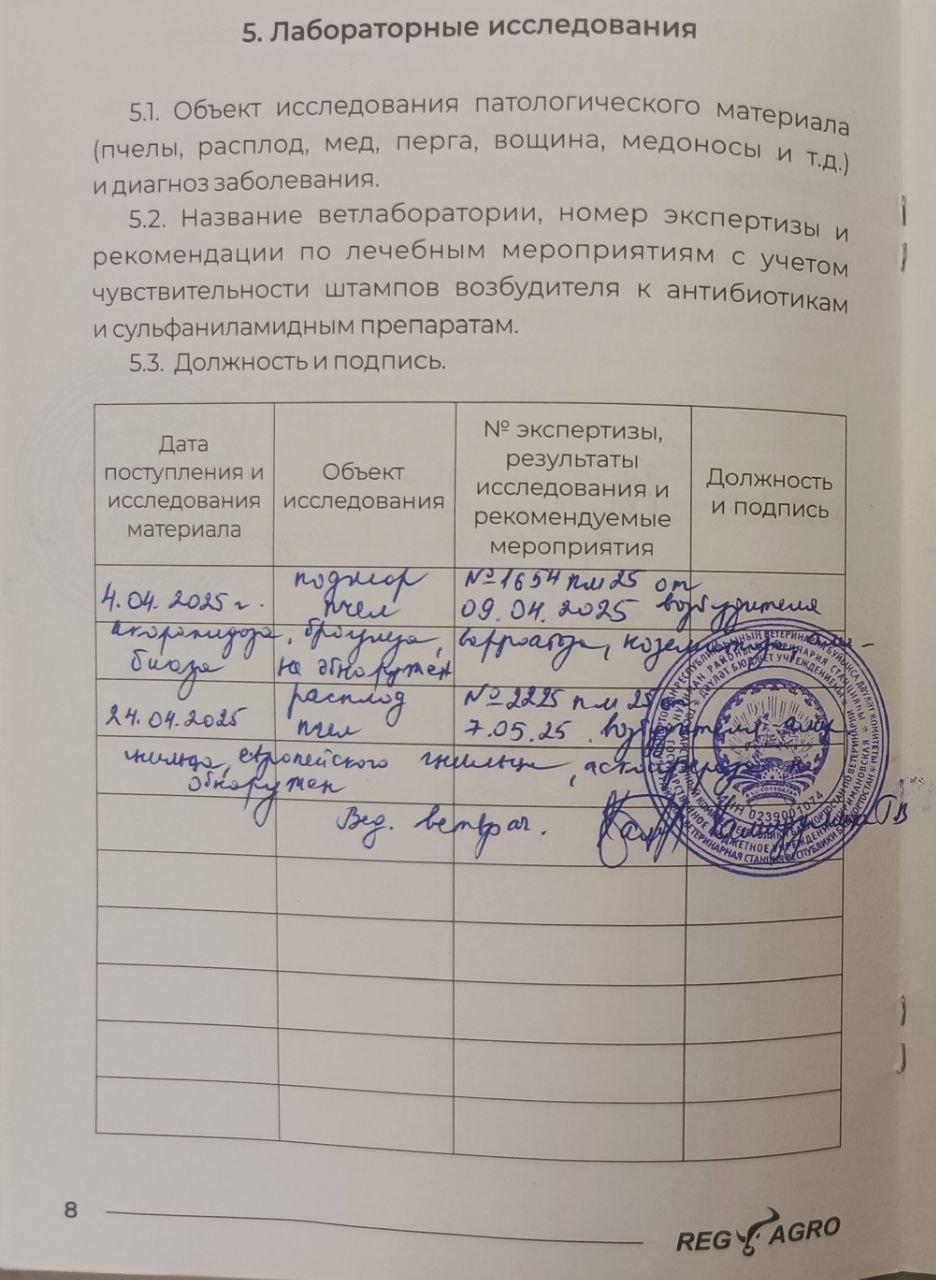 5. Лабораторные исследования
5.1. Объект исследования патологического материала
(пчелы, расплод, мед, перга, вощина, медоносы и т.д.)
и диагноз заболевания.
5.2. Название ветлаборатории, номер экспертизы и
рекомендации по лечебным мероприятиям с учетом
чувствительности штампов возбудителя к антибиотикам
и сульфаниламидным препаратам.
5.3. Должность и подпись.
Дата
поступления и
исследования
материала
Объект
исследования
№ экспертизы,
результаты
исследования и
рекомендуемые
мероприятия
Должность
и подпись
4.04.2025 г.
подмор
пчел
№1654 пм 25 от
09.04.2025 возбудителя
акарапидоза, браулеза, варроатоза, нозематоза,
не обнаружен
24.04.2025
расплод
пчел
№2225 пм 25 от
7.05.25 возбудителя
гнильца, европейского гнильца, аскосфероза не
обнаружен
Вед. ветврач.
ИНН 0239001074
8
REG AGRO